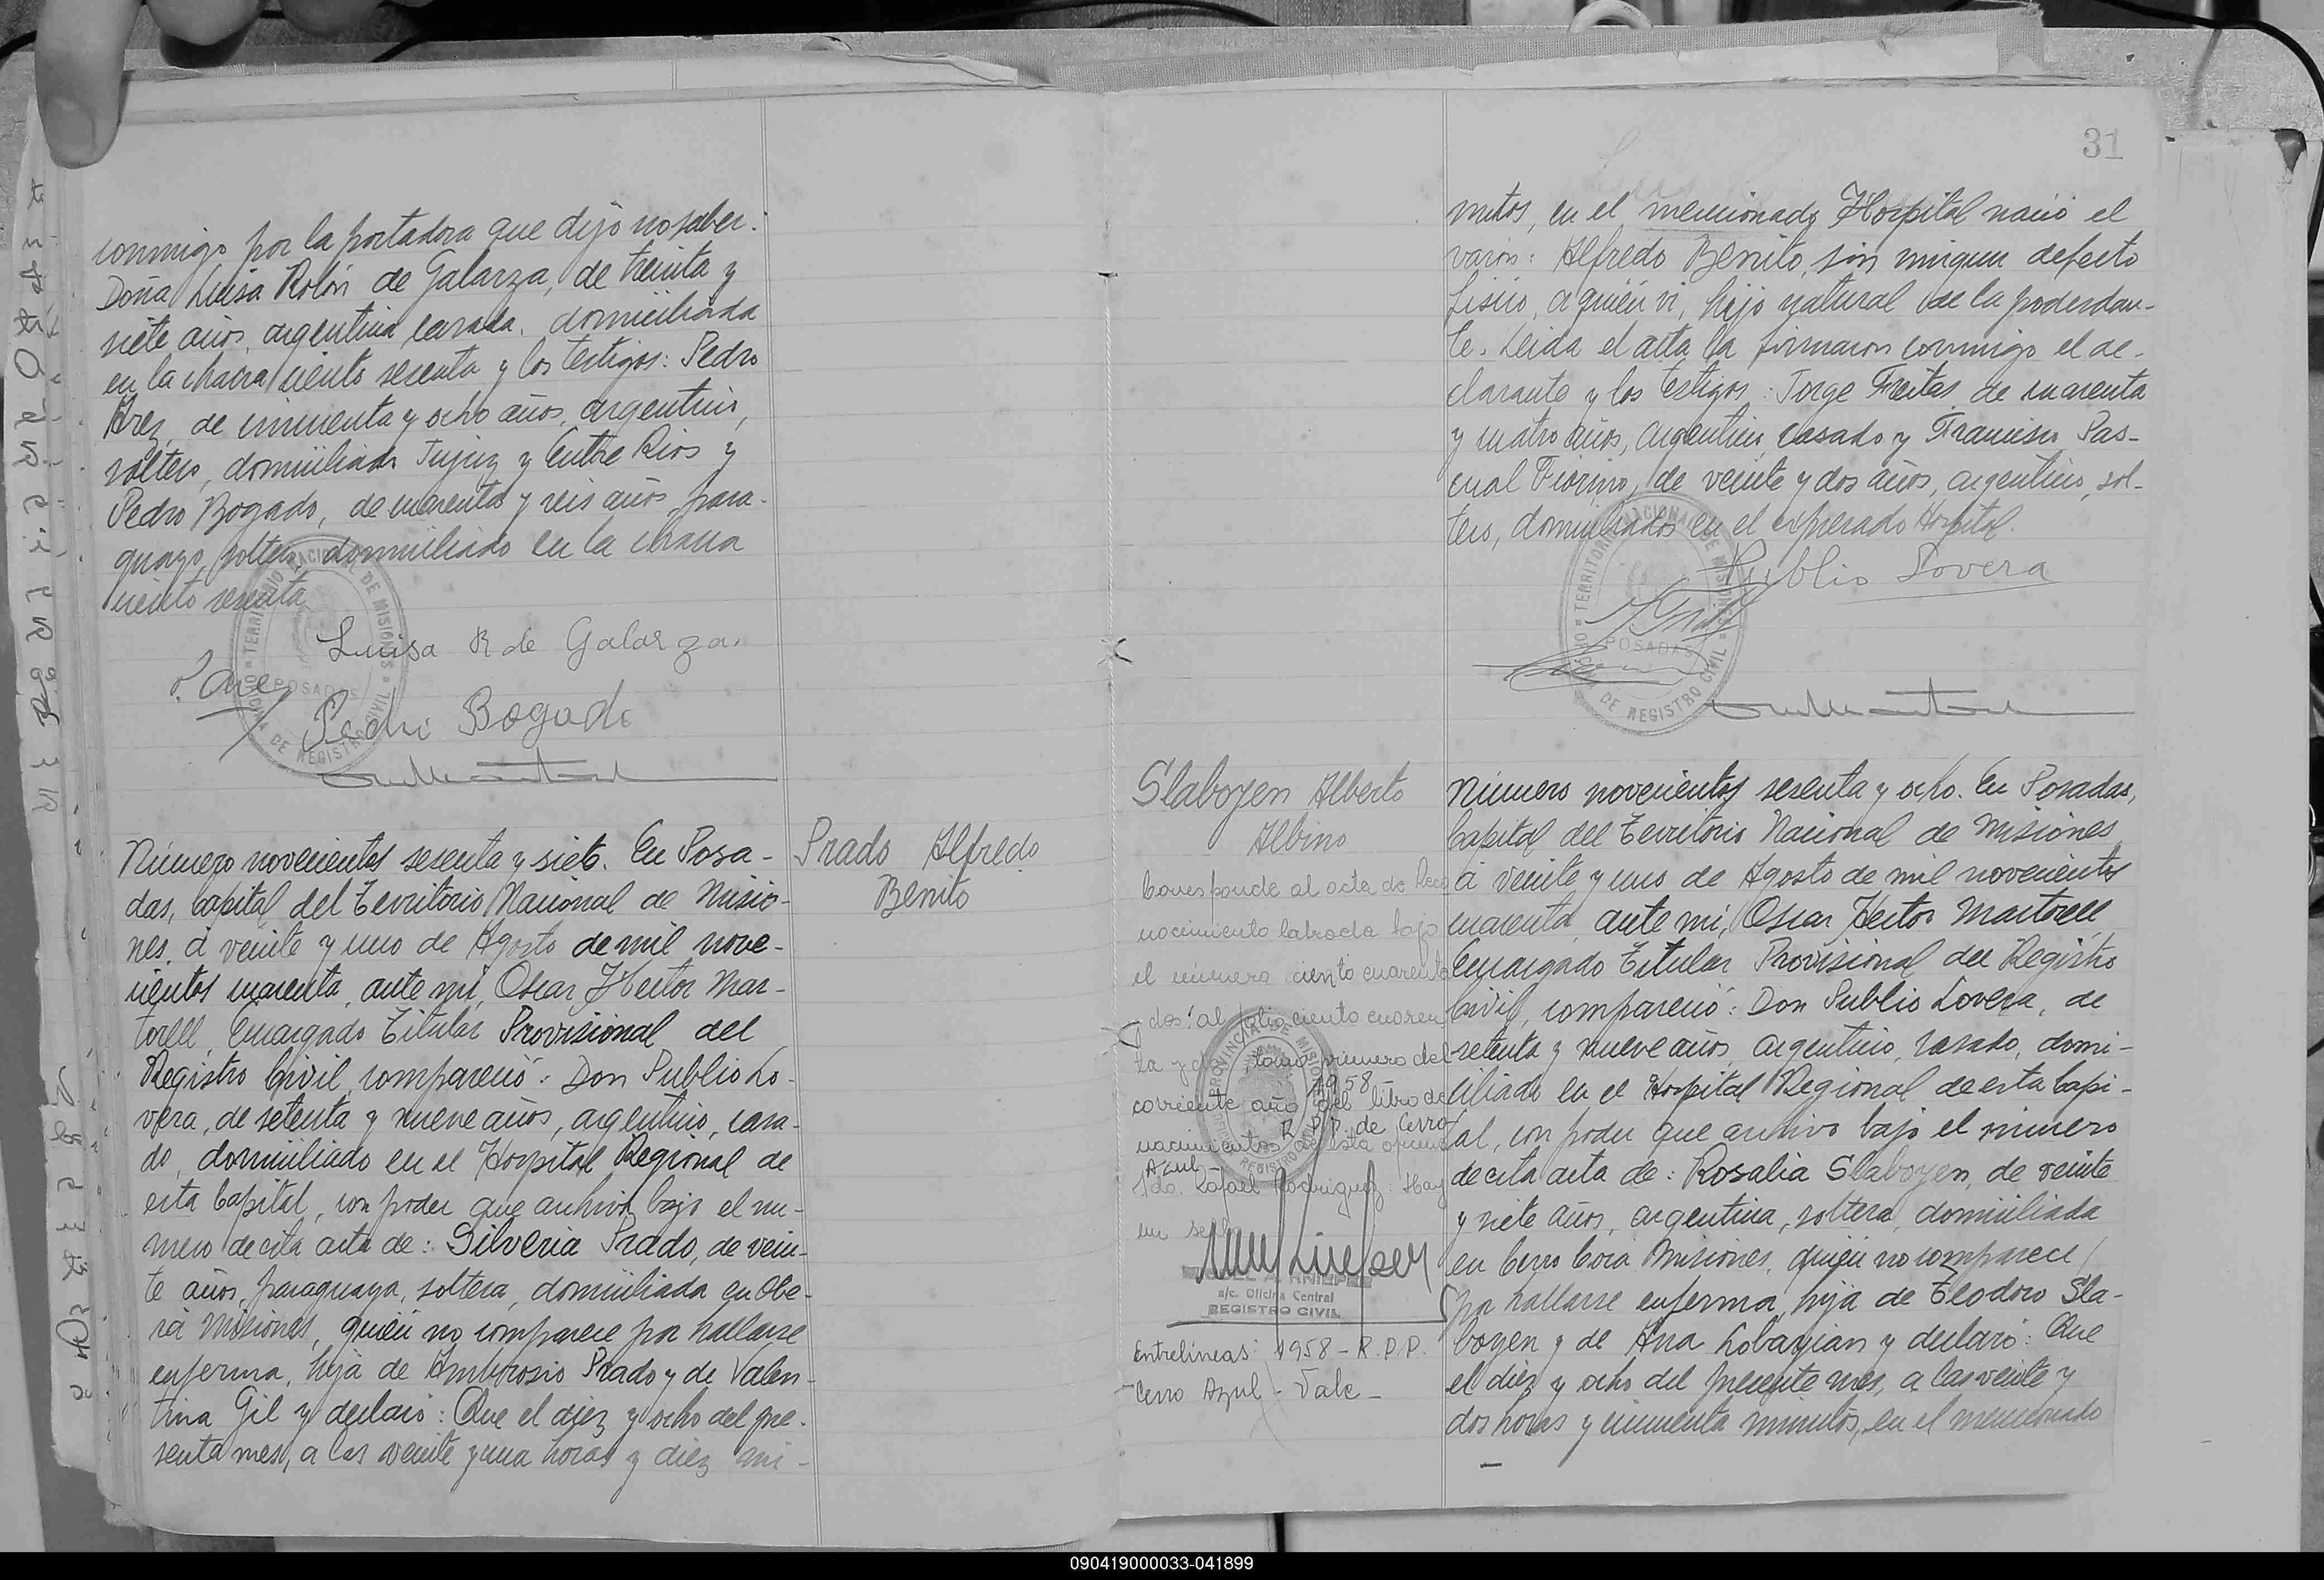 conmigo por la portadora que dijo no saber.
Doña Luisa Rolón de Galarza, de treinta y
siete años, argentina, casada, domiciliada
en la chacra ciento sesenta y los testigos: Pedro
Arez, de cincuenta y ocho años, argentino,
soltero, domiciliado Jujuy y Entre Rios y
Pedro Bogado, de cuarenta y seis años, para-
guayo, soltero, domiciliado en la chacra
ciento sesenta
Luisa R de Galarza.
P. Are
Pedro Bogado
TERRITORIO NACIONAL DE MISIONES
POSADAS
OFICINA DE REGISTRO CIVIL
Número novecientos sesenta y siete. En Posa-
das, Capital del Territorio Nacional de Misio-
nes, á veinte y uno de Agosto de mil nove-
cientos cuarenta, ante mí, Oscar Hector Mar-
torell, Encargado Titular Provisional del
Registro Civil, compareció: Don Publio Lo-
vera, de setenta y nueve años, argentino, casa-
do, domiciliado en el Hospital Regional de
esta Capital, con poder que archivo bajo el nu-
mero de esta acta de: Silveria Prado, de vein-
te años, paraguaya, soltera, domiciliada en Obe-
rá Misiones, quién no comparece por hallarse
enferma, hija de Ambrosio Prado y de Valen-
tina Gil y declaró: Que el diez y ocho del pre-
sente mes, a las veinte y una horas y diez mi-
Prado Alfredo
Benito
31
nutos, en el mencionado Hospital nació el
varón: Alfredo Benito, sin ningun defecto
fisico, a quién vi, hijo natural de la poderdan-
te. Leida el acta la firmaron conmigo el de-
clarante y los testigos: Jorge Freitas, de cuarenta
y cuatro años, argentino, casado y Francisco Pas-
cual Fiorino, de veinte y dos años, argentino, sol-
tero, domiciliados en el expresado Hospital.
Publio Lovera
TERRITORIO NACIONAL DE MISIONES
POSADAS
OFICINA DE REGISTRO CIVIL
Slaboyen Alberto
Albino
Corresponde al acta de Reco
nocimiento labrada bajo
el número ciento cuarenta
y dos al folio ciento cuaren
ta y dos tomo primero del
1958
corriente año del libro de
R.P.P. de Cerro
nacimientos de esta oficina
Azul-
Fdo. Rafael Rodriguez. Hay
un sello
PROVINCIA DE MISIONES
REGISTRO
a/c. Oficina Central
REGISTRO CIVIL
Entrelineas: 1958 - R.P.P.
Cerro Azul - Vale -
Número novecientos sesenta y ocho. En Posadas,
Capital del Territorio Nacional de Misiones
á veinte y uno de Agosto de mil novecientos
cuarenta, ante mí, Oscar Hector Martorell
Encargado Titular Provisional del Registro
Civil, compareció: Don Publio Lovera, de
setenta y nueve años, argentino, casado, domi-
ciliado en el Hospital Regional de esta Capi-
tal, con poder que archivo bajo el número
de esta acta de: Rosalia Slaboyen, de veinte
y siete años, argentina, soltera, domiciliada
en Cerro Corá Misiones, quién no comparece
por hallarse enferma, hija de Teodoro Sla-
boyen y de Ana Lobayian y declaró: Que
el diez y ocho del presente mes, a las veinte y
dos horas y cincuenta minutos, en el mencionado
090419000033-041899